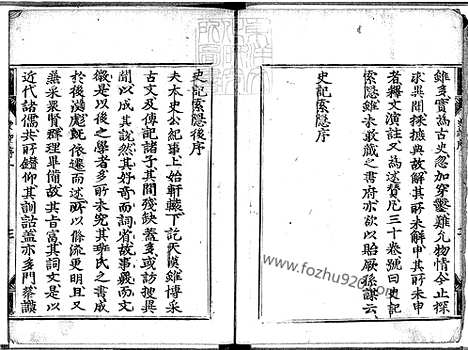 雖多實爲古史忽加穿鑿難允物情今止探
求異聞採摭典故解其所未解申其所未申
者釋文演註又爲述贊凡三十卷號曰史記
索隱雖未敢藏之書府亦欲以貽厥孫謀云
史記索隱序
史記索隱後序
夫太史公紀事上始軒轅下訖天漢雖博采
古文及傳記諸子其間殘缺蓋多或訪搜異
聞以成其說然其人好奇而詞省故事覈而文
微是以後之學者多所未究其班氏之書成
於後漢彪既依遷而述所以條流更明且又
兼采衆賢羣理畢備故其旨富其詞文是以
近代諸儒共所鑽仰其訓詁蓋亦多門蔡謨
www.fozhu920.com